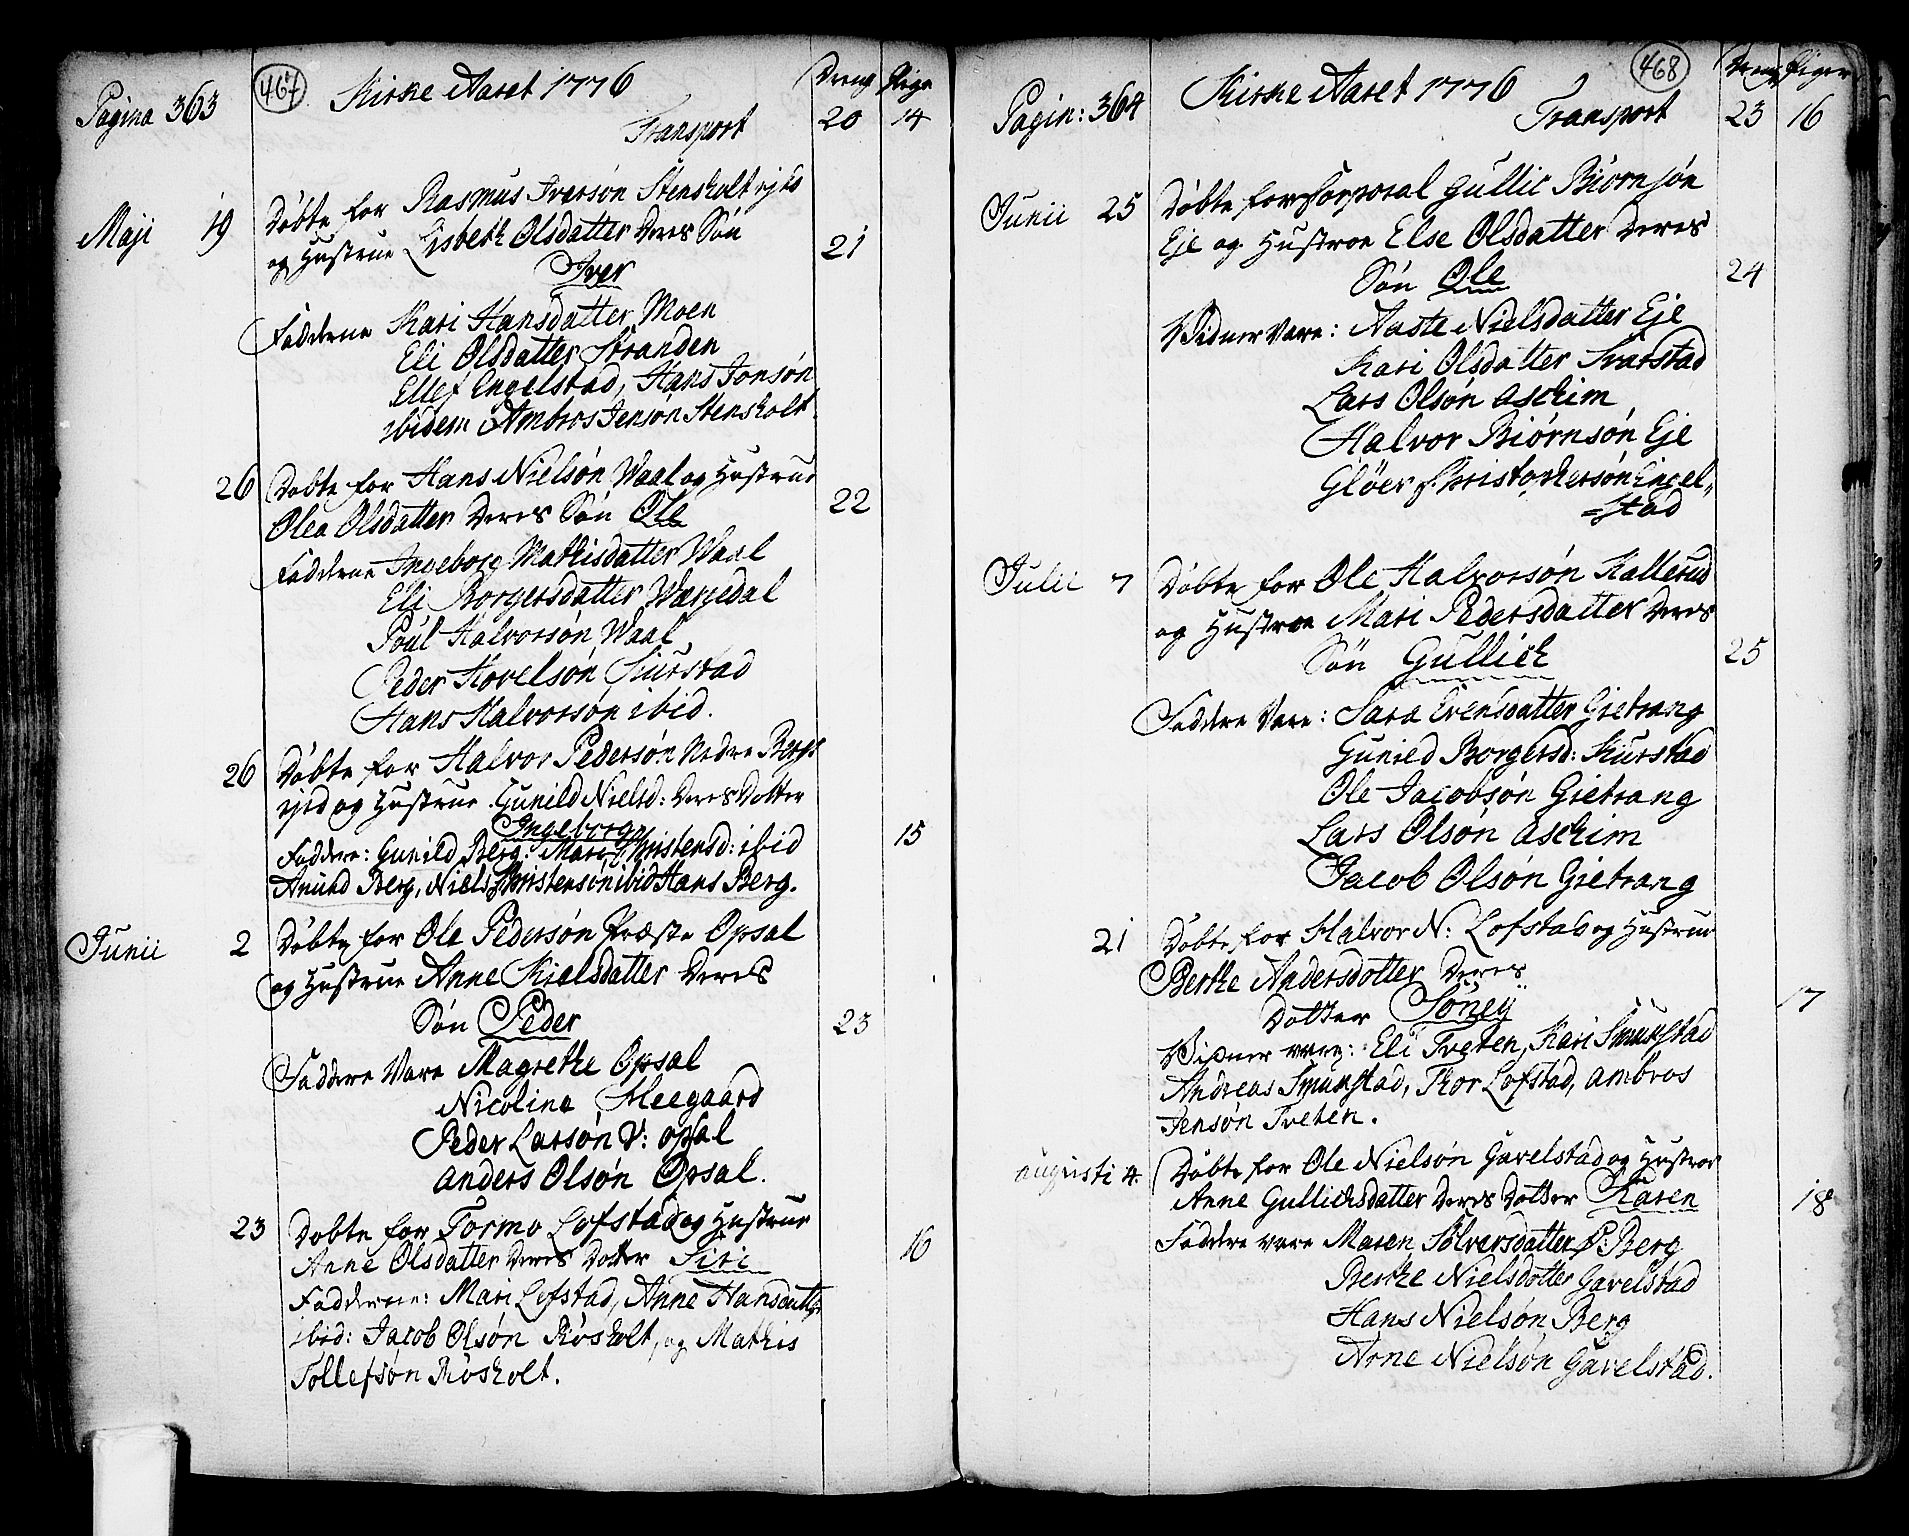 Pagina 363
467
Kirke Aaret 1776
Dreng Pige
Transport 20 14
Maji 19 Døbte for Rasmus Iversøn Stensholt ejed
og Hustrue Lisbeth Olsdatter Deres Søn 21
Iver
Fadderne Kari Hansdatter Moen
Eli Olsdatter Stranden
Ellef Engelstad, Hans Jonsøn
ibidem Ambros Jensøn Stensholt
26 Døbte for Hans Nielsøn Waal og Hustrue
Olea Olsdatter Deres Søn Ole 22
Fadderne Ingeborg Mathisdatter Waal
Eli Borgersdatter Wærjedal
Poul Halvorsøn Waal
Peder Hovelsøn Kurstad
Hans Halvorsøn ibid.
26 Døbte for Halvor Pedersøn Nedre Bergs
ejed og Hustrue Gunild Nielsd: Deres Dotter
Ingeborg 15
Faddere: Gunild Berg: Mari Christensd: ibid
Amund Berg, Niels Christensøn ibid Hans Berg.
Junii 2 Døbte for Ole Pedersøn Præste Opsal
og Hustrue Anne Kielsdatter Deres
Søn Peder 23
Faddere Vare Magrethe Opsal
Nicoline Kleegaard
Peder Larsøn V: opsal
anders Olsøn Opsal.
23 Døbte for Tormo Lofstad og Hustrue
Anne Olsdatter Deres Dotter Siri 16
Fadderne: Mari Lofstad, Anne Hansdatter
ibid: Jacob Olsøn Røsholt, og Mathis
Tollefsøn Røsholt.
Pagin: 364
468
Kirke Aaret 1776
Dreng Piger
Transport 23 16
Junii 25 Døbte for Corporal Gullic Biørnsøn
Eje og Hustroe Else Olsdatter Deres
Søn Ole 24
Vidner Vare: Aaste Nielsdatter Eje
Kari Olsdatter Svarstad
Lars Olsøn aschim
Halvor Biørnsøn Eje
Gløer Christophersøn Engel„
=stad
Julii 7 Døbte for Ole Halvorsøn Hallerud
og Hustroe Mari Pedersdatter Deres
Søn Gullich 25
Faddere Vare: Sara Evensdatter Gietrang
Gunild Borgersd: Kurstad
Ole Jacobsøn Gietrang
Lars Olsøn aschim
Jacob Olsøn Gietrang
21 Døbte for Halvor N: Lofstad og Hustrue
Berthe Andersdotter Deres
Dotter Søney 17
Vidner vare: Eli Tveten, Kari Smunstad
Andreas Smunstad, Thor Lofstad, ambros
Jensøn Tveten.
augusti 4. Døbte for Ole Nielsøn Gavelstad og Hustroe
Anne Gullichsdatter Deres Dotter Karen 18
Faddere vare Maren Sølversdatter P: Berg
Berthe Nielsdotter Gavelstad
Hans Nielsøn Berg
Arne Nielsøn Gavelstad.